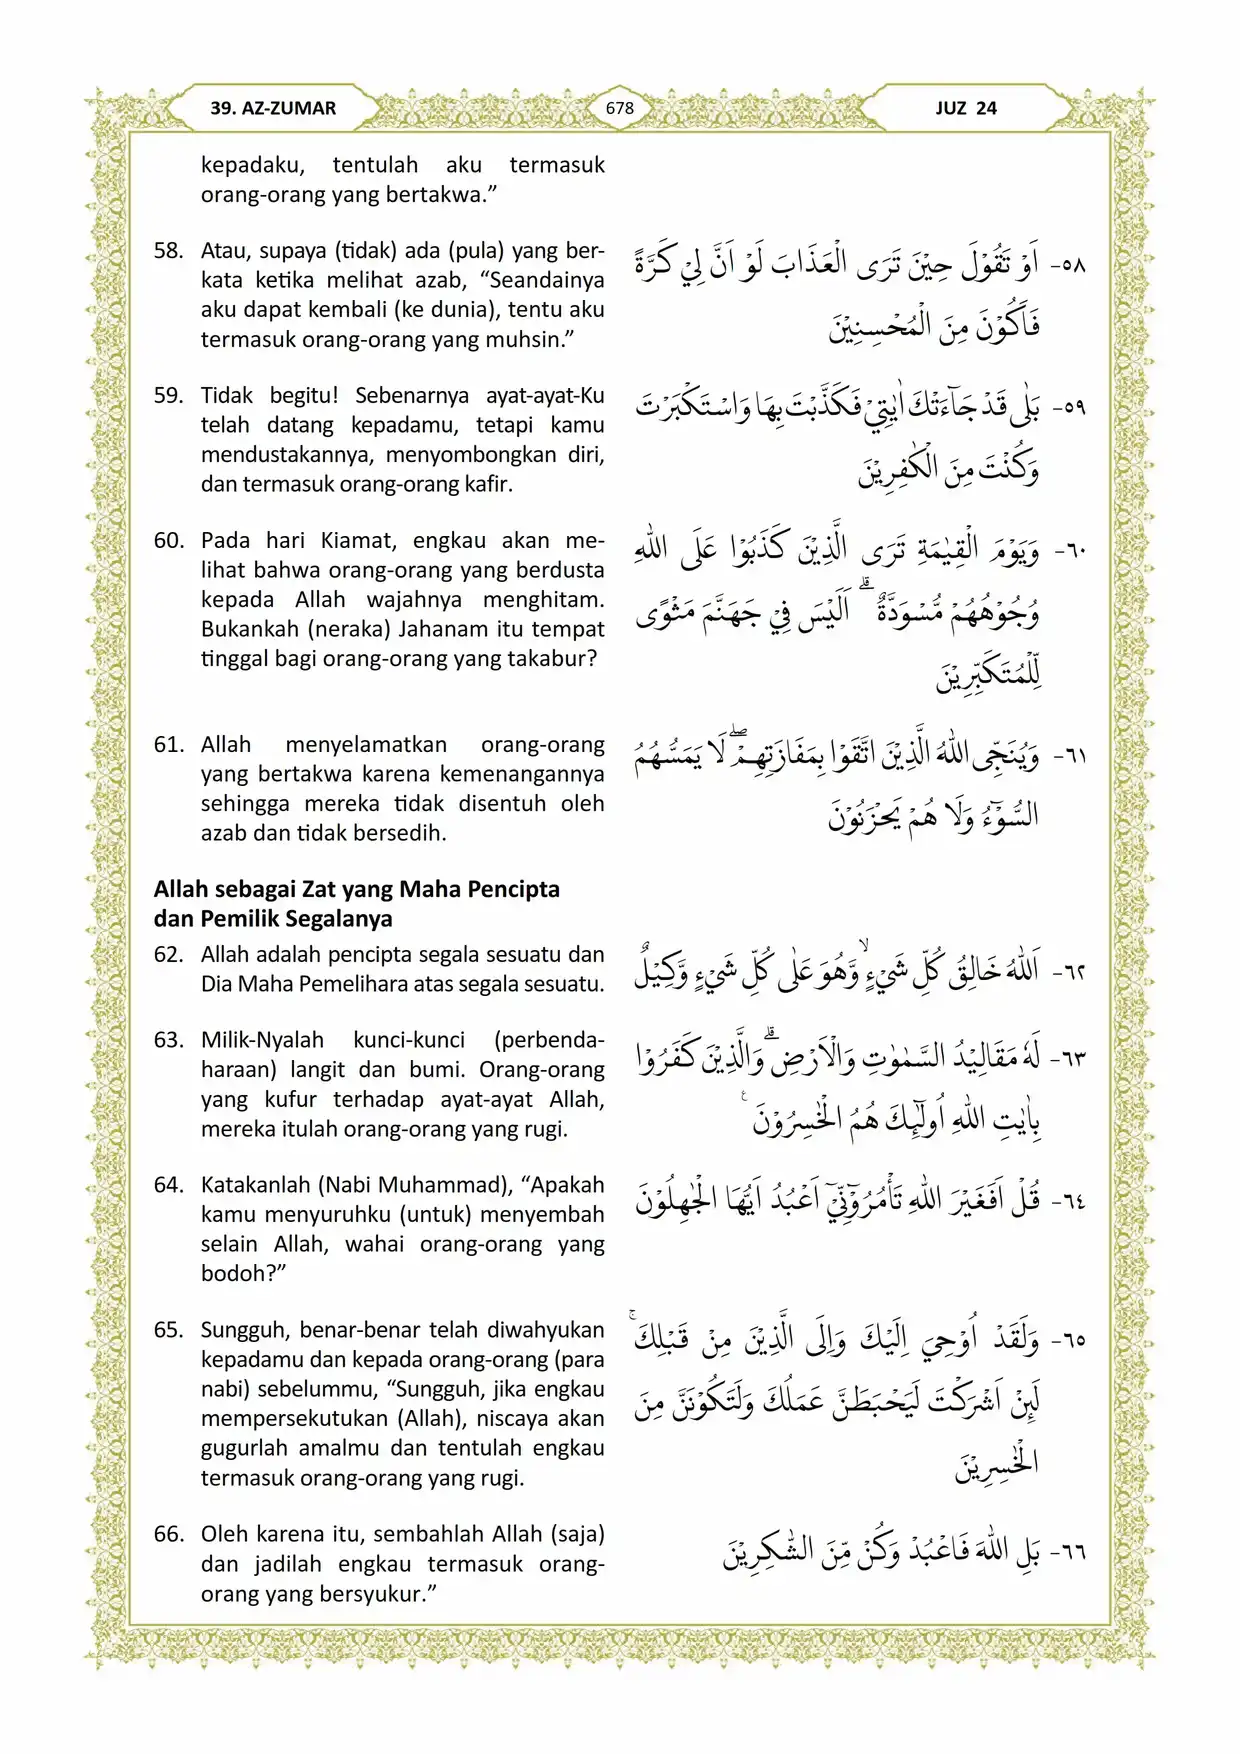 39. AZ-ZUMAR
678
JUZ 24
kepadaku, tentulah aku termasuk
orang-orang yang bertakwa.”
58. Atau, supaya (tidak) ada (pula) yang ber-
kata ketika melihat azab, “Seandainya
aku dapat kembali (ke dunia), tentu aku
termasuk orang-orang yang muhsin.”
٥٨- اَوْ تَقُوْلَ حِيْنَ تَرَى الْعَذَابَ لَوْ اَنَّ لِيْ كَرَّةً
فَاَكُوْنَ مِنَ الْمُحْسِنِيْنَ
59. Tidak begitu! Sebenarnya ayat-ayat-Ku
telah datang kepadamu, tetapi kamu
mendustakannya, menyombongkan diri,
dan termasuk orang-orang kafir.
٥٩- بَلٰى قَدْ جَاۤءَتْكَ اٰيٰتِيْ فَكَذَّبْتَ بِهَا وَاسْتَكْبَرْتَ
وَكُنْتَ مِنَ الْكٰفِرِيْنَ
60. Pada hari Kiamat, engkau akan me-
lihat bahwa orang-orang yang berdusta
kepada Allah wajahnya menghitam.
Bukankah (neraka) Jahanam itu tempat
tinggal bagi orang-orang yang takabur?
٦٠- وَيَوْمَ الْقِيٰمَةِ تَرَى الَّذِيْنَ كَذَبُوْا عَلَى اللّٰهِ
وُجُوْهُهُمْ مُّسْوَدَّةٌ ۗ اَلَيْسَ فِيْ جَهَنَّمَ مَثْوًى
لِّلْمُتَكَبِّرِيْنَ
61. Allah menyelamatkan orang-orang
yang bertakwa karena kemenangannya
sehingga mereka tidak disentuh oleh
azab dan tidak bersedih.
٦١- وَيُنَجِّى اللّٰهُ الَّذِيْنَ اتَّقَوْا بِمَفَازَتِهِمْۖ لَا يَمَسُّهُمُ
السُّوْۤءُ وَلَا هُمْ يَحْزَنُوْنَ
Allah sebagai Zat yang Maha Pencipta
dan Pemilik Segalanya
62. Allah adalah pencipta segala sesuatu dan
Dia Maha Pemelihara atas segala sesuatu.
٦٢- اَللّٰهُ خَالِقُ كُلِّ شَيْءٍ ۙوَّهُوَ عَلٰى كُلِّ شَيْءٍ وَّكِيْلٌ
63. Milik-Nyalah kunci-kunci (perbenda-
haraan) langit dan bumi. Orang-orang
yang kufur terhadap ayat-ayat Allah,
mereka itulah orang-orang yang rugi.
٦٣- لَهٗ مَقَالِيْدُ السَّمٰوٰتِ وَالْاَرْضِۗ وَالَّذِيْنَ كَفَرُوْا
بِاٰيٰتِ اللّٰهِ اُولٰۤىِٕكَ هُمُ الْخٰسِرُوْنَ ࣖ
64. Katakanlah (Nabi Muhammad), “Apakah
kamu menyuruhku (untuk) menyembah
selain Allah, wahai orang-orang yang
bodoh?”
٦٤- قُلْ اَفَغَيْرَ اللّٰهِ تَأْمُرُوْۤنِّيْٓ اَعْبُدُ اَيُّهَا الْجٰهِلُوْنَ
65. Sungguh, benar-benar telah diwahyukan
kepadamu dan kepada orang-orang (para
nabi) sebelummu, “Sungguh, jika engkau
mempersekutukan (Allah), niscaya akan
gugurlah amalmu dan tentulah engkau
termasuk orang-orang yang rugi.
٦٥- وَلَقَدْ اُوْحِيَ اِلَيْكَ وَاِلَى الَّذِيْنَ مِنْ قَبْلِكَۚ
لَىِٕنْ اَشْرَكْتَ لَيَحْبَطَنَّ عَمَلُكَ وَلَتَكُوْنَنَّ مِنَ
الْخٰسِرِيْنَ
66. Oleh karena itu, sembahlah Allah (saja)
dan jadilah engkau termasuk orang-
orang yang bersyukur.”
٦٦- بَلِ اللّٰهَ فَاعْبُدْ وَكُنْ مِّنَ الشّٰكِرِيْنَ